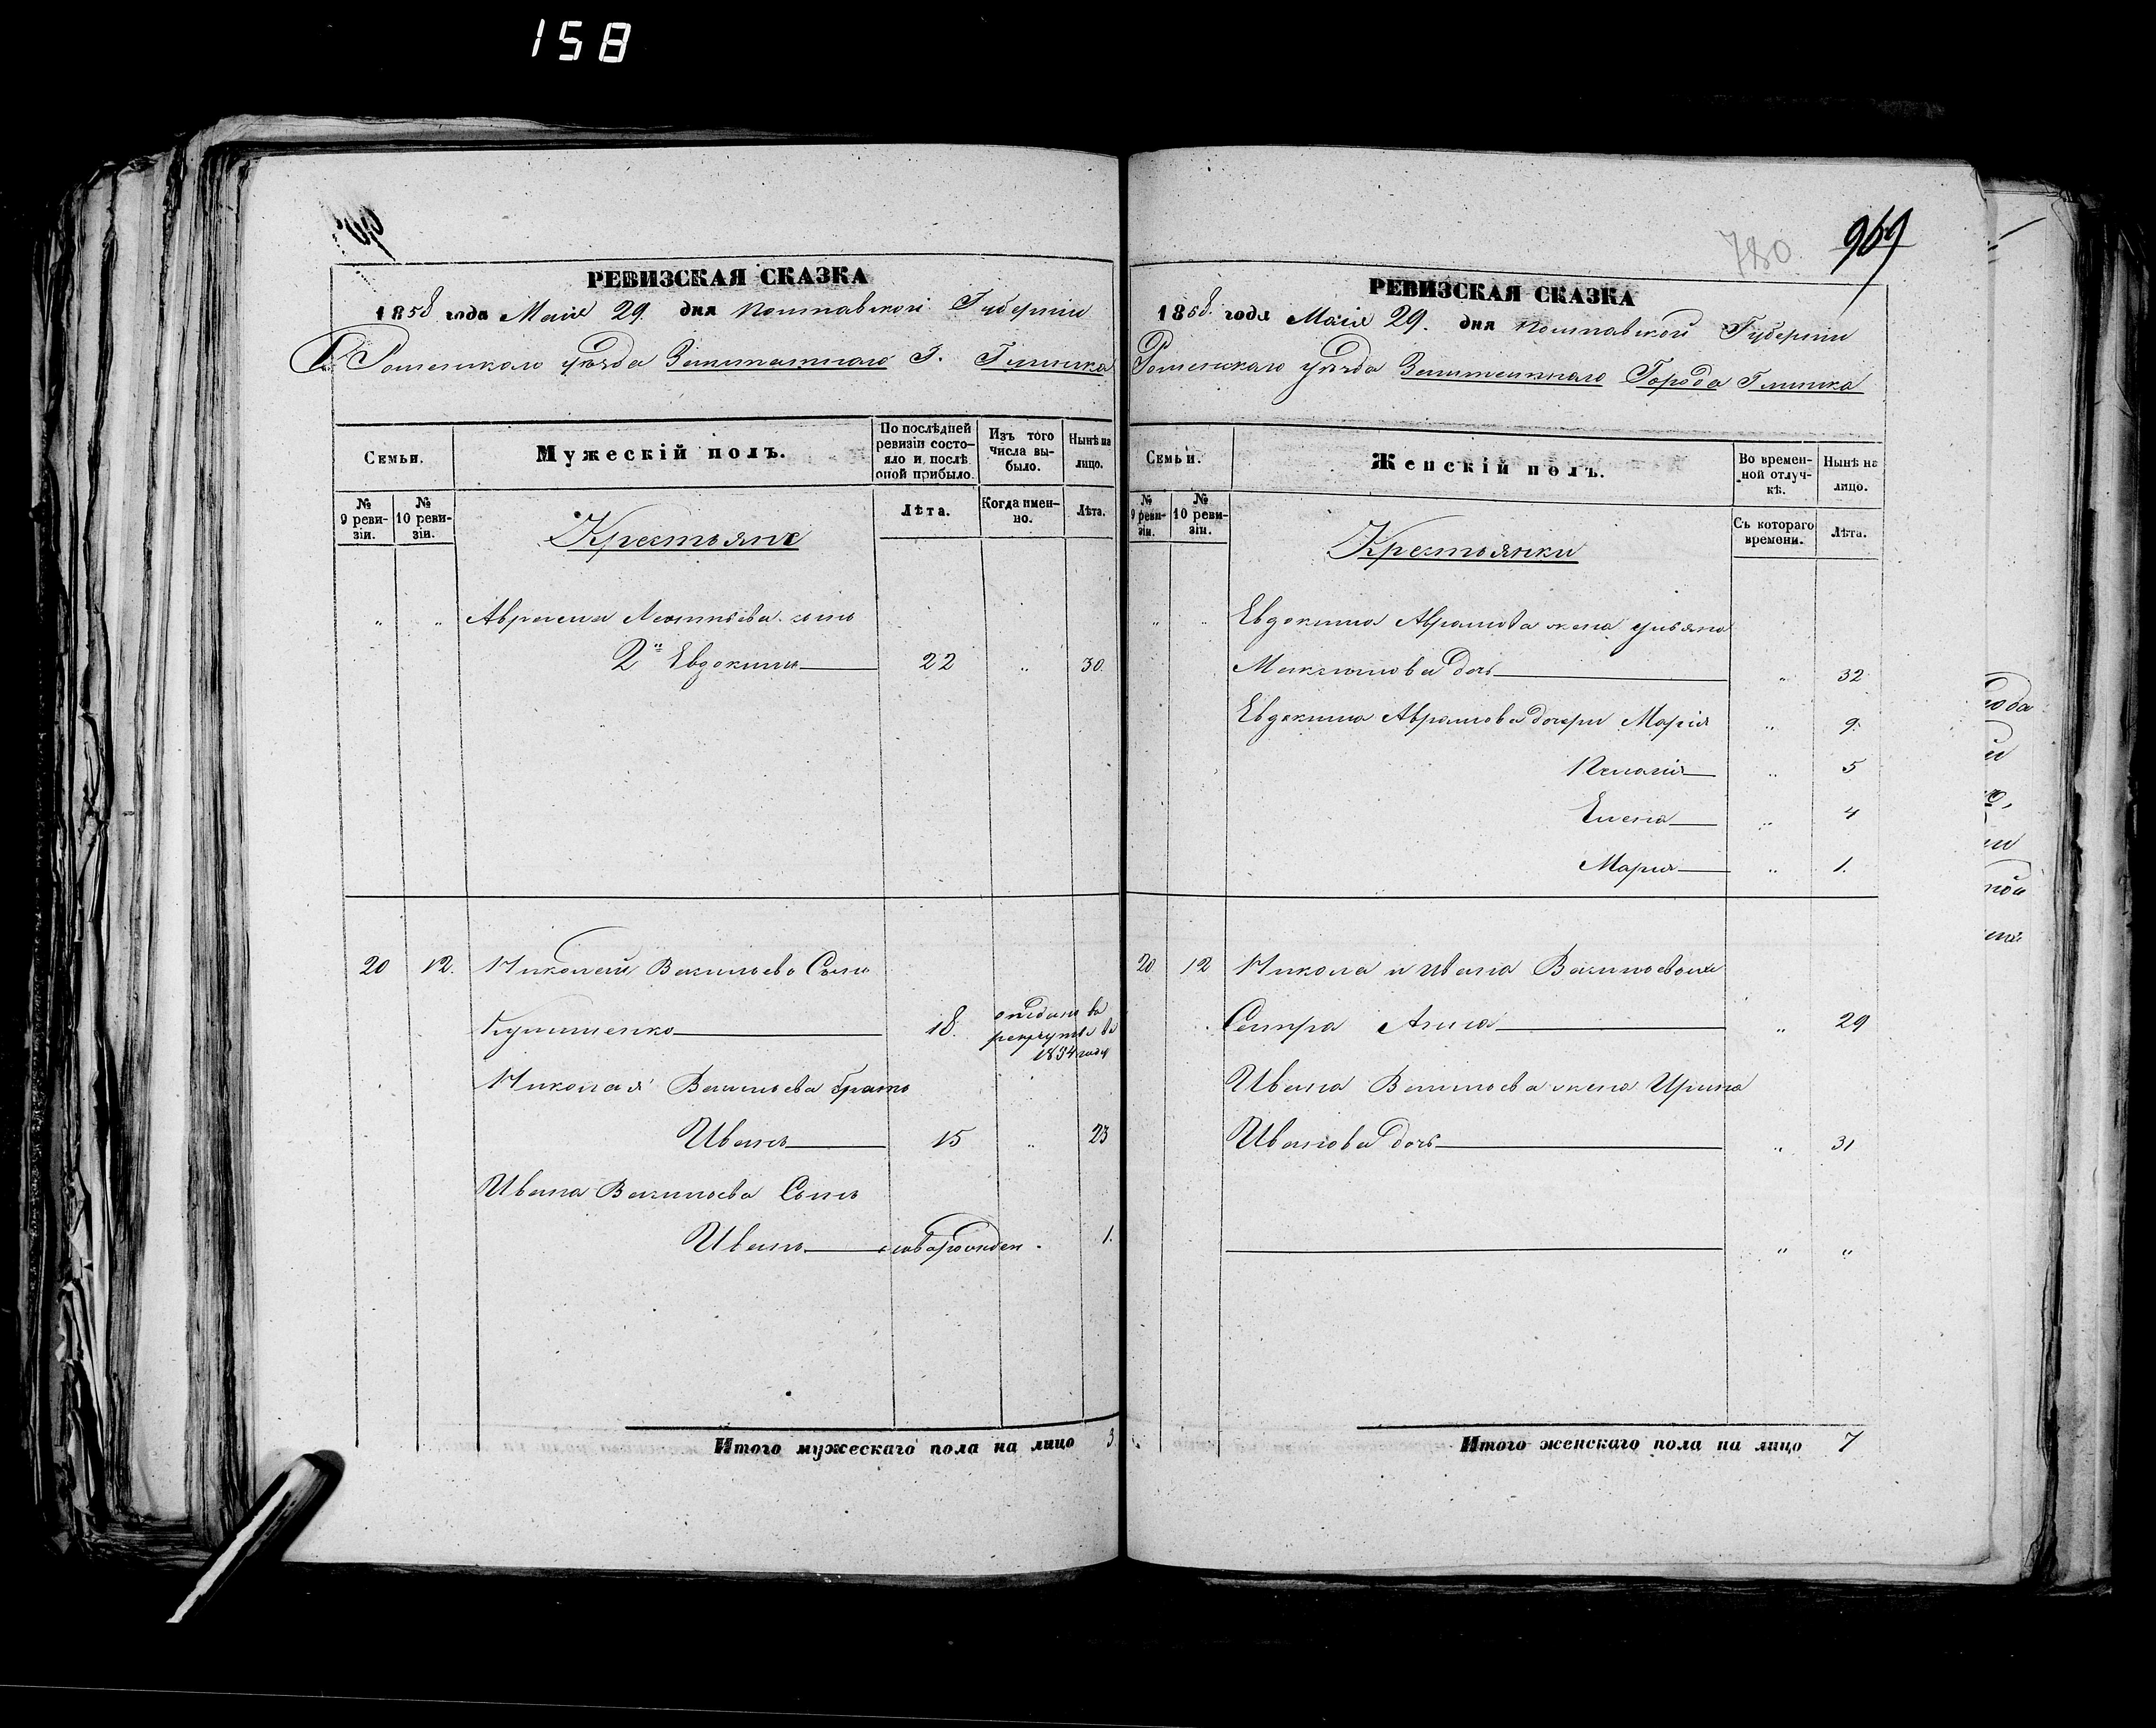 158
РЕВИЗСКАЯ СКАЗКА
1858 года Маія 29. дня Полтавской Губерніи
Роменскаго уѣзда Заштатнаго Г. Глинска
Семьи.
Мужескій полъ.
По послѣдней ревизіи состояло и послѣ оной прибыло.
Изъ того числа выбыло.
Нынѣ на лицо.
№ 9 ревизіи.
№ 10 ревизіи.
Лѣта.
Когда именно.
Лѣта.
Крестьяне
„ „ Аврама Леонтьева сынъ
2й Евдокимъ 22 „ 30.
20 12. Николай Васильевъ Сынъ
18. отданъ въ
рекруты въ
1854 годѣ
Николая Васильева братъ
Иванъ 15 „ 23
Ивана Васильева Сынъ
Иванъ новорожден. 1.
Итого мужескаго пола на лицо 3.
780
969
РЕВИЗСКАЯ СКАЗКА
1858. года Маія 29. дня Полтавской Губерніи
Роменскаго уѣзда Заштатнаго Города Глинска
Семьи.
Женскій полъ.
Во временной отлучкѣ.
Нынѣ на лицо.
№ 9 ревизіи.
№ 10 ревизіи.
Съ котораго времени.
Лѣта.
Крестьянки
„ „ Евдокима Аврамова жена Ульяна
Максимова дочь „ 32
Евдокима Аврамова дочери Марія „ 9.
Пелагія „ 5
Елена „ 4
Марія „ 1.
20 12 Никола и Ивана Васильевыхъ
Сестра Анна „ 29
Ивана Васильева жена Ирина
Иванова дочь „ 31
„ „
Итого женскаго пола на лицо 7